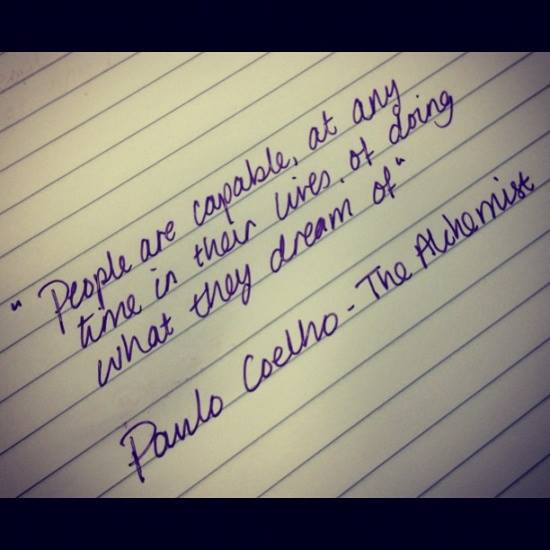 "People are capable, at any
time in their lives, of doing
what they dream of"
Paulo Coelho - The Alchemist